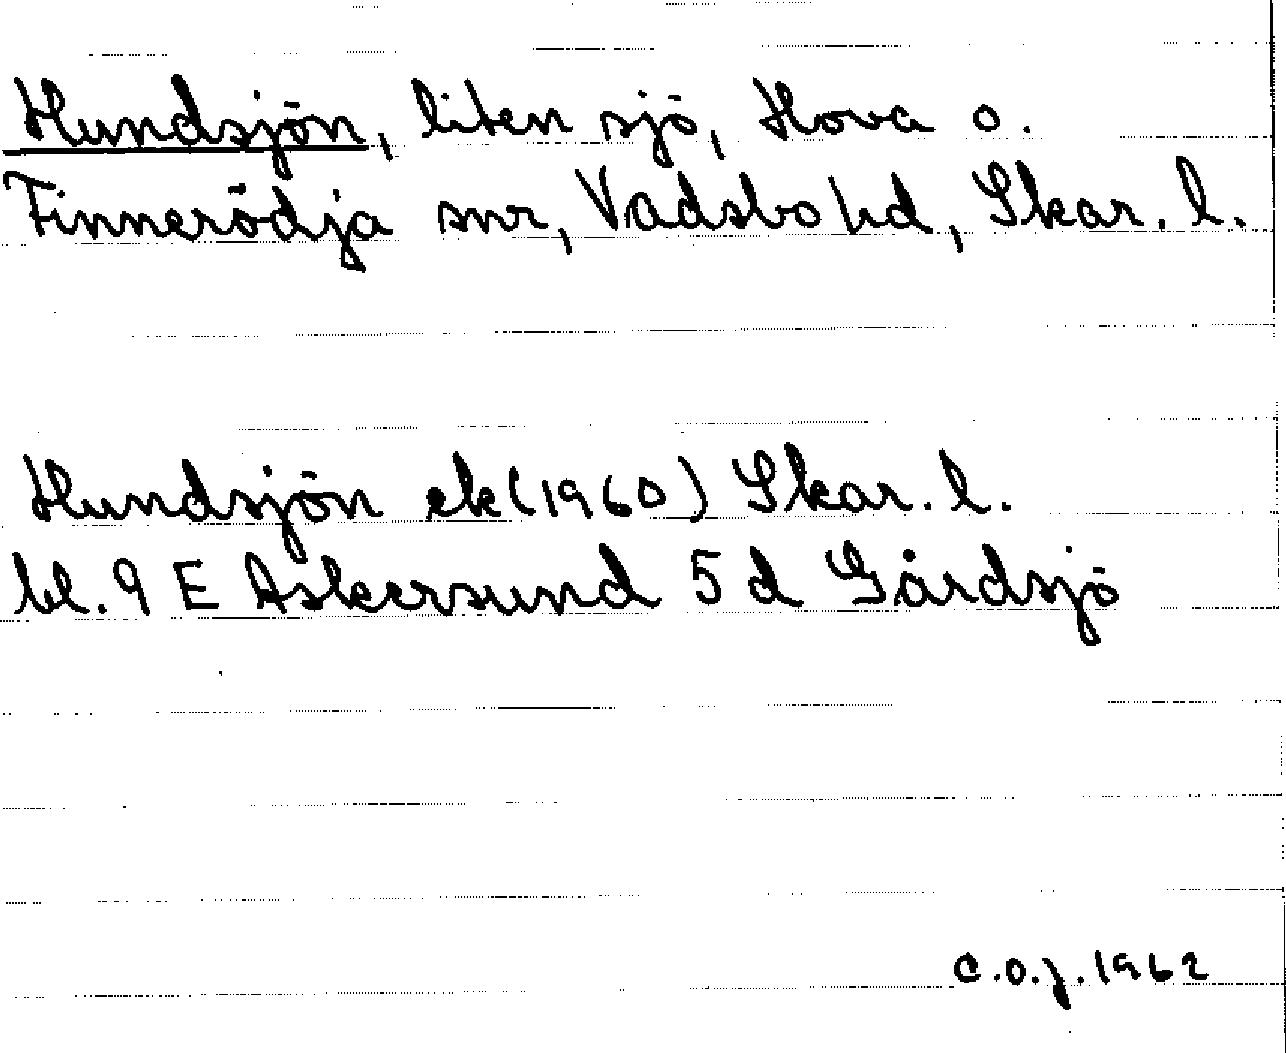 Hundsjön, liten sjö, Hova o.
Finnerödja snr, Vadsbo hd, Skar. l.
Hundsjön ek (1960) Skar. l.
bl. 9 E Askersund 5 d Gårdsjö
C.O.J. 1962